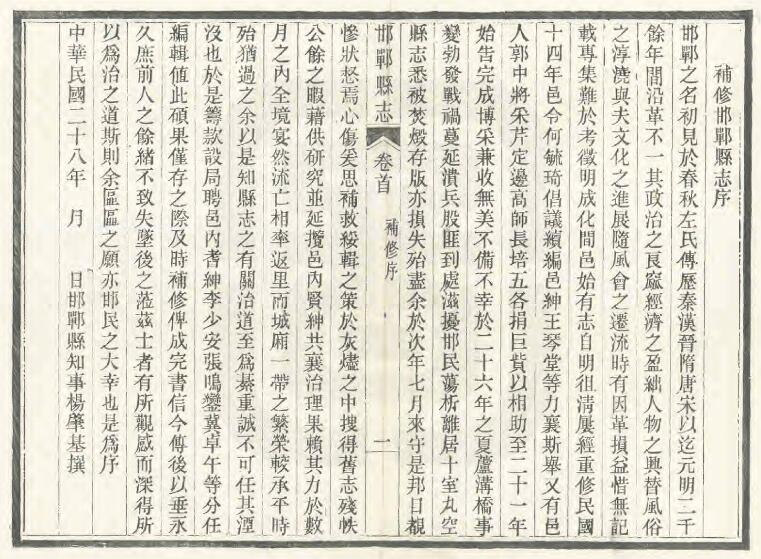 補修邯鄲縣志序
邯鄲之名初見於春秋左氏傳歷秦漢晉隋唐宋以迄元明二千
餘年間沿革不一其政治之良窳經濟之盈絀人物之興替風俗
之淳澆與夫文化之進展隨風會之遷流時有因革損益惜無記
載專集難於考徵明成化間邑始有志自明徂淸展經重修民國
十四年邑令何毓琦倡議續編邑紳王琴堂等力襄斯舉又有邑
人郭中將采芹定邊高師長培五各捐巨貲以相助至二十一年
始告完成博采兼收無美不備不幸於二十六年之夏蘆溝橋事
變勃發戰禍蔓延潰兵股匪到處滋擾邯民蕩析離居十室丸空
縣志悉被焚燬存版亦損失殆盡余於次年七月來守是邦日覩
邯鄲縣志
卷首
補修序
二
慘狀惄焉心傷爰思補救綏輯之策於灰燼之中搜得舊志殘帙
公餘之暇藉供研究並延攬邑內賢紳共襄治理果賴其力於數
月之內全境宴然流亡相率返里而城廂一帶之繁榮較承平時
殆猶過之余以是知縣志之有關治道至爲綦重誠不可任其湮
沒也於是籌款設局聘邑內耆紳李少安張鳴鑾冀卓午等分任
編輯值此碩果僅存之際及時補修俾成完書信今傳後以垂永
久庶前人之餘緒不致失墜後之蒞茲土者有所觀感而深得所
以爲治之道斯則余區區之願亦邯民之大幸也是爲序
中華民國二十八年　月　　日邯鄲縣知事楊肇基撰